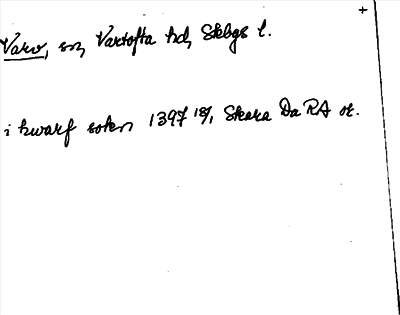 Varv, sn, Vartofta hd, Skbgs l.
i hwarf soken 1397 18/1, Skara Da RA or.